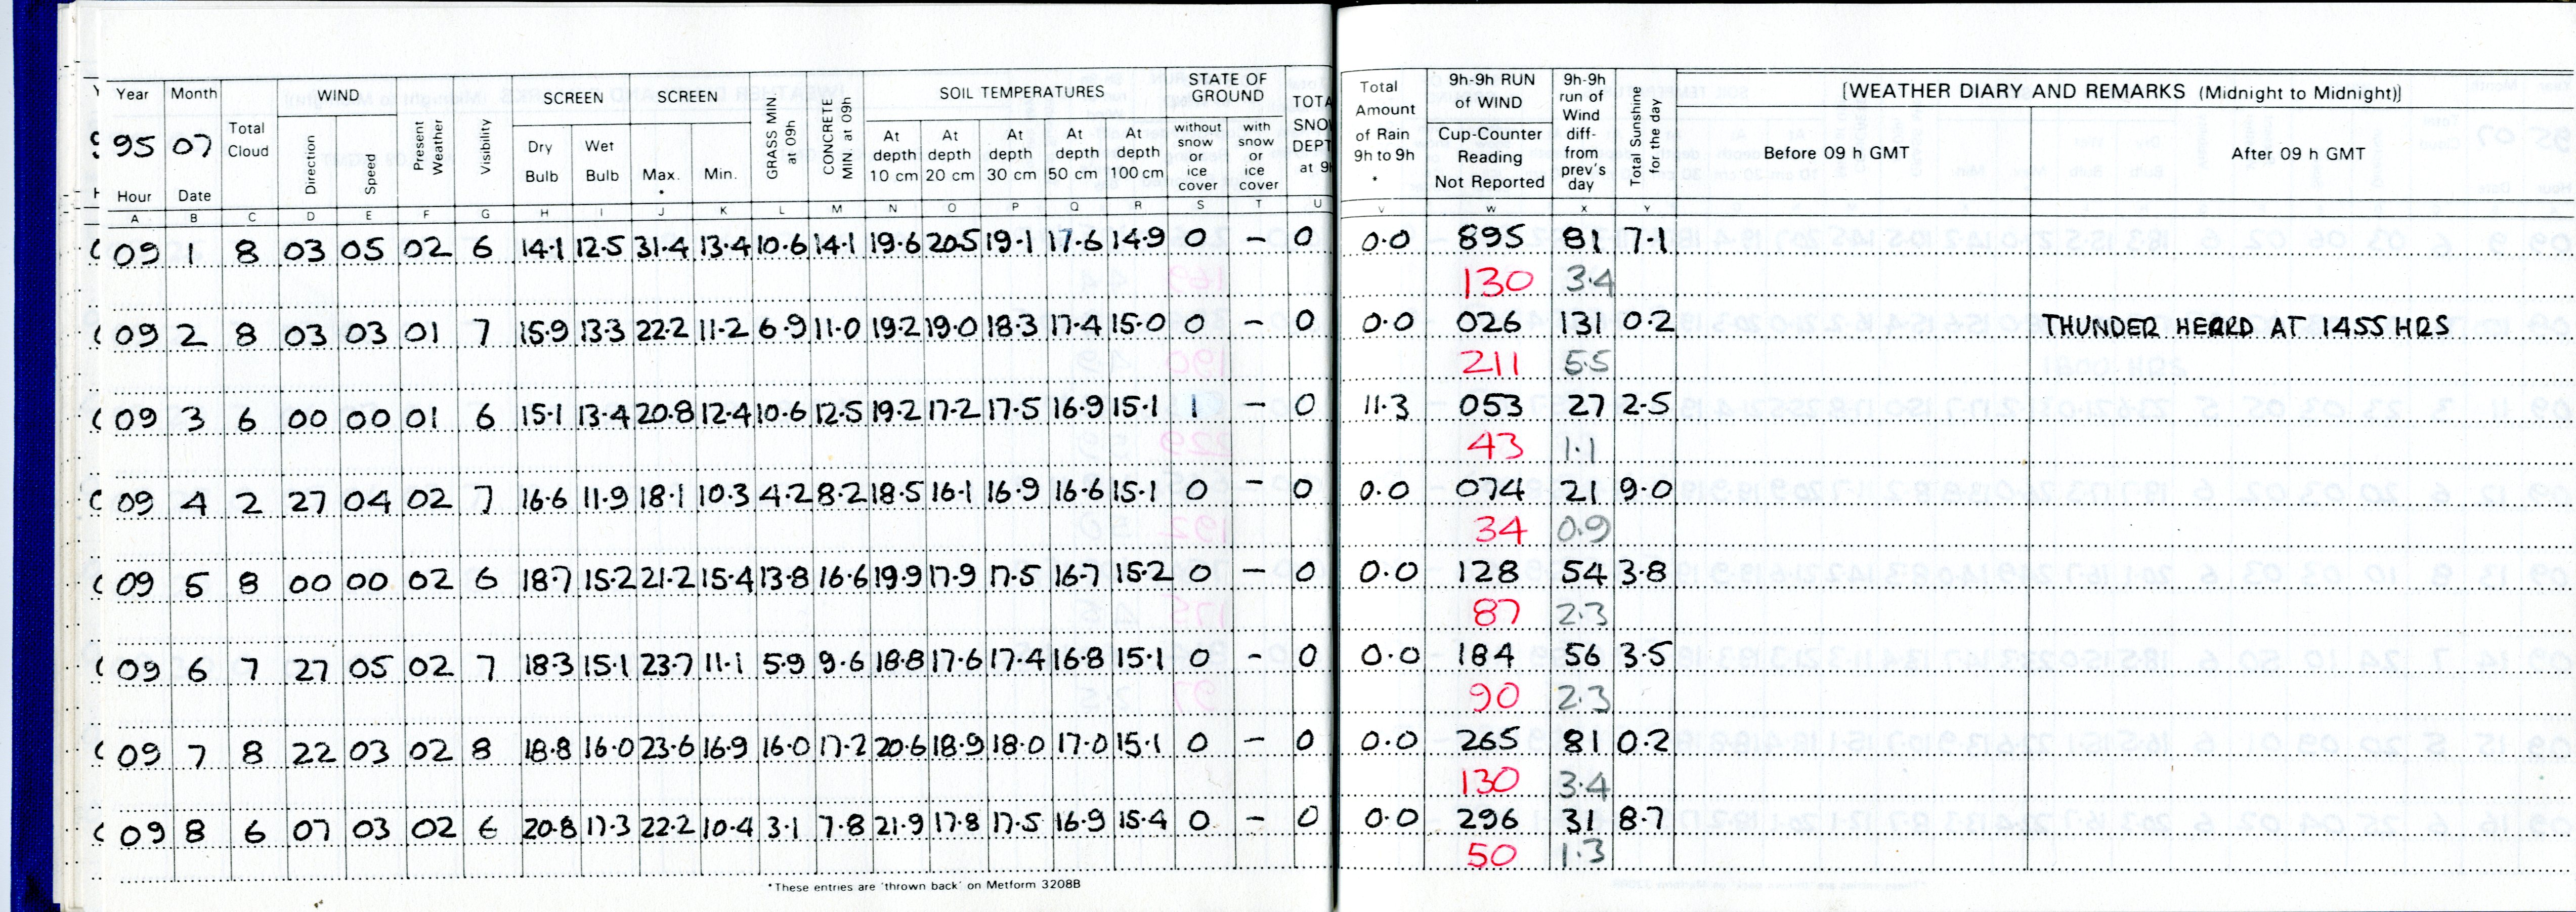 Year Month Total Cloud WIND Present Weather Visibility SCREEN SCREEN GRASS MIN at 09h CONCRETE MIN. at 09h SOIL TEMPERATURES STATE OF GROUND TOTA SNO DEPT at 9h Total Amount of Rain 9h to 9h * 9h-9h RUN of WIND 9h-9h run of Wind diff- from prev's day Total Sunshine for the day [WEATHER DIARY AND REMARKS (Midnight to Midnight)]
95 07 Direction Speed Dry Bulb Wet Bulb Max. * Min. At depth 10 cm At depth 20 cm At depth 30 cm At depth 50 cm At depth 100 cm without snow or ice cover with snow or ice cover Cup-Counter Reading Not Reported Before 09 h GMT After 09 h GMT
Hour Date
A B C D E F G H I J K L M N O P Q R S T U V W X Y
09 1 8 03 05 02 6 14.1 12.5 31.4 13.4 10.6 14.1 19.6 20.5 19.1 17.6 14.9 0 - 0 0.0 895 81 7.1
130 3.4
09 2 8 03 03 01 7 15.9 13.3 22.2 11.2 6.9 11.0 19.2 19.0 18.3 17.4 15.0 0 - 0 0.0 026 131 0.2 THUNDER HEARD AT 1455 HRS
211 5.5
09 3 6 00 00 01 6 15.1 13.4 20.8 12.4 10.6 12.5 19.2 17.2 17.5 16.9 15.1 1 - 0 11.3 053 27 2.5
43 1.1
09 4 2 27 04 02 7 16.6 11.9 18.1 10.3 4.2 8.2 18.5 16.1 16.9 16.6 15.1 0 - 0 0.0 074 21 9.0
34 0.9
09 5 8 00 00 02 6 18.7 15.2 21.2 15.4 13.8 16.6 19.9 17.9 17.5 16.7 15.2 0 - 0 0.0 128 54 3.8
87 2.3
09 6 7 27 05 02 7 18.3 15.1 23.7 11.1 5.9 9.6 18.8 17.6 17.4 16.8 15.1 0 - 0 0.0 184 56 3.5
90 2.3
09 7 8 22 03 02 8 18.8 16.0 23.6 16.9 16.0 17.2 20.6 18.9 18.0 17.0 15.1 0 - 0 0.0 265 81 0.2
130 3.4
09 8 6 07 03 02 6 20.8 17.3 22.2 10.4 3.1 7.8 21.9 17.8 17.5 16.9 15.4 0 - 0 0.0 296 31 8.7
50 1.3
*These entries are 'thrown back' on Metform 3208B